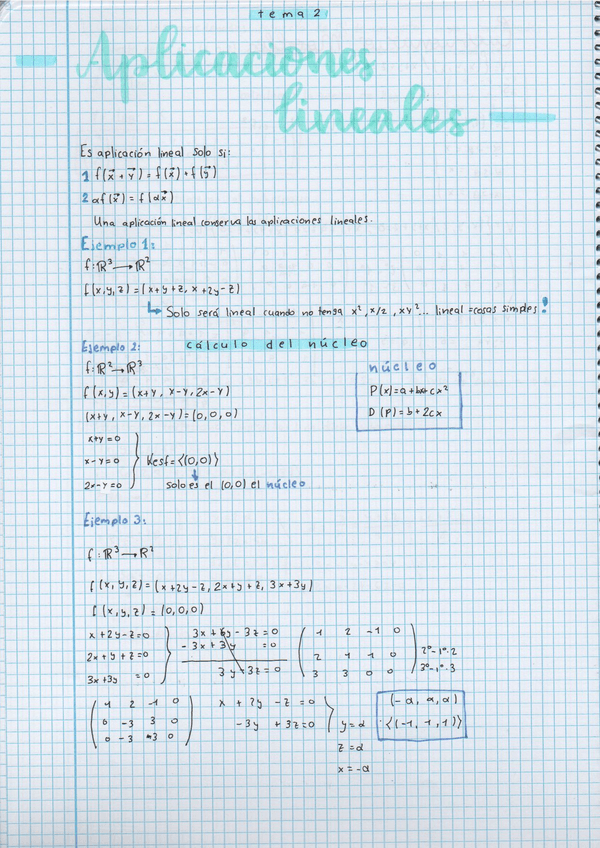 tema 2
Aplicaciones
lineales
Es aplicación lineal solo si:
1 f(x⃗ + y⃗) = f(x⃗) + f(y⃗)
2 αf(x⃗) = f(αx⃗)
Una aplicación lineal conserva las aplicaciones lineales.
Ejemplo 1:
f: ℝ³ → ℝ²
f(x,y,z) = (x+y+z, x+2y-z)
↳ Solo será lineal cuando no tenga x², x/2, xy²... lineal = cosas simples!
Ejemplo 2: cálculo del núcleo
f: ℝ² → ℝ³
f(x,y) = (x+y, x-y, 2x-y)
(x+y, x-y, 2x-y) = (0,0,0)
x+y=0
x-y=0 } Kerf = ⟨(0,0)⟩
2x-y=0
solo es el (0,0) el núcleo
núcleo
P(x) = a+bx+cx²
D(P) = b+2cx
Ejemplo 3:
f: ℝ³ → ℝ²
f(x,y,z) = (x+2y-z, 2x+y+z, 3x+3y)
f(x,y,z) = (0,0,0)
x+2y-z=0
2x+y+z=0
3x+3y =0
3x+6y-3z=0
-3x+3y =0
3y-3z=0
1 2 -1 0
2 1 1 0 2º-1º·2
3 3 0 0 3º-1º·3
1 2 -1 0
0 -3 3 0
0 -3 3 0
x + 2y - z = 0
-3y + 3z = 0
y = α
z = α
x = -α
(-α, α, α)
⟨(-1, 1, 1)⟩